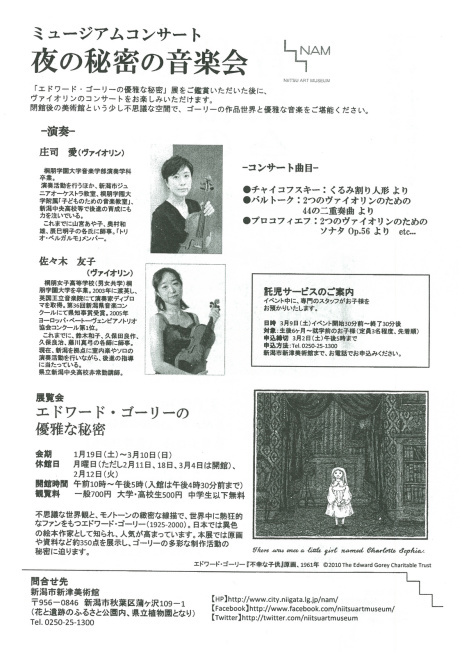 ミュージアムコンサート
夜の秘密の音楽会
NAM
NIITSU ART MUSEUM
「エドワード・ゴーリーの優雅な秘密」展をご鑑賞いただいた後に、
ヴァイオリンのコンサートをお楽しみいただけます。
閉館後の美術館という少し不思議な空間で、ゴーリーの作品世界と優雅な音楽をご堪能ください。
-演奏-
庄司 愛(ヴァイオリン)
桐朋学園大学音楽学部演奏学科
卒業。
演奏活動を行うほか、新潟市ジュ
ニアオーケストラ教室、桐朋学園大
学附属「子どものための音楽教室」、
新潟中央高校等で後進の育成にも
力を注いでいる。
これまでに山宮あや子、奥村和
雄、辰巳明子の各氏に師事。「トリ
オ・ベルガルモ」メンバー。
-コンサート曲目-
●チャイコフスキー:くるみ割り人形 より
●バルトーク:2つのヴァイオリンのための
44の二重奏曲 より
●プロコフィエフ:2つのヴァイオリンのための
ソナタ Op.56 より etc...
佐々木 友子
(ヴァイオリン)
桐朋女子高等学校(男女共学)桐
朋学園大学を卒業。2003年に渡英し、
英国王立音楽院にて演奏家ディプロ
マを取得。第36回新潟県音楽コン
クールにて県知事賞受賞。2005年
ヨーロッパ・ベートーヴェンピアノトリオ
協会コンクール第1位。
これまでに、鈴木和子、久保田良作、
久保良治、藤川真弓の各師に師事。
現在、新潟を拠点に室内楽やソロの
演奏活動を行いながら、後進の指導
に当たっている。
県立新潟中央高校非常勤講師。
託児サービスのご案内
イベント中に、専門のスタッフがお子様を
お預かりいたします。
日時 3月9日(土)イベント開始30分前~終了30分後
対象:生後6ヶ月~就学前のお子様(定員3名程度、先着順)
申込締切 3月2日(土)午後5時まで
申込方法:Tel. 0250-25-1300
新潟市新津美術館まで、お電話でお申込みください。
展覧会
エドワード・ゴーリーの
優雅な秘密
会期 1月19日(土)~3月10日(日)
休館日 月曜日(ただし2月11日、18日、3月4日は開館)、
2月12日(火)
開館時間 午前10時~午後5時(入館は午後4時30分前まで)
観覧料 一般700円 大学・高校生500円 中学生以下無料
不思議な世界観と、モノトーンの緻密な線描で、世界中に熱狂的
なファンをもつエドワード・ゴーリー(1925-2000)。日本では異色
の絵本作家として知られ、人気が高まっています。本展では原画
や資料など約350点を展示し、ゴーリーの多彩な制作活動の
秘密に迫ります。
There was once a little girl named Charlotte Sophia.
エドワード・ゴーリー『不幸な子供』原画、1961年 ©2010 The Edward Gorey Charitable Trust
問合せ先
新潟市新津美術館
〒956-0846 新潟市秋葉区蒲ヶ沢109-1
(花と遺跡のふるさと公園内、県立植物園となり)
Tel. 0250-25-1300
【HP】http://www.city.niigata.lg.jp/nam/
【Facebook】http://www.facebook.com/niitsuartmuseum/
【Twitter】http://twitter.com/niitsuartmuseum